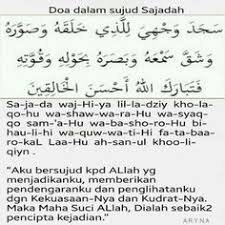 Doa dalam sujud Sajadah
سَجَدَ وَجْهِي لِلَّذِي خَلَقَهُ وَصَوَّرَهُ
وَشَقَّ سَمْعَهُ وَبَصَرَهُ بِحَوْلِهِ وَقُوَّتِهِ
فَتَبَارَكَ اللهُ أَحْسَنُ الْخَالِقِينَ
Sa-ja-da waj-Hi-ya lil-la-dziy kho-la-
qo-hu wa-shaw-wa-ra-Hu wa-syaq-
qo sam-'a-Hu wa-ba-sho-ro-Hu bi-
hau-li-hi wa-quw-wa-ti-Hi fa-ta-baa-
ro-kaL Laa-Hu ah-san-ul khoo-li-
qiyn .
"Aku bersujud kpd ALlah yg
menjadikanku, memberikan
pendengaranku dan penglihatanku
dgn Kekuasaan-Nya dan Kudrat-Nya.
Maka Maha Suci ALlah, Dialah sebaik2
pencipta kejadian."
ARYNA